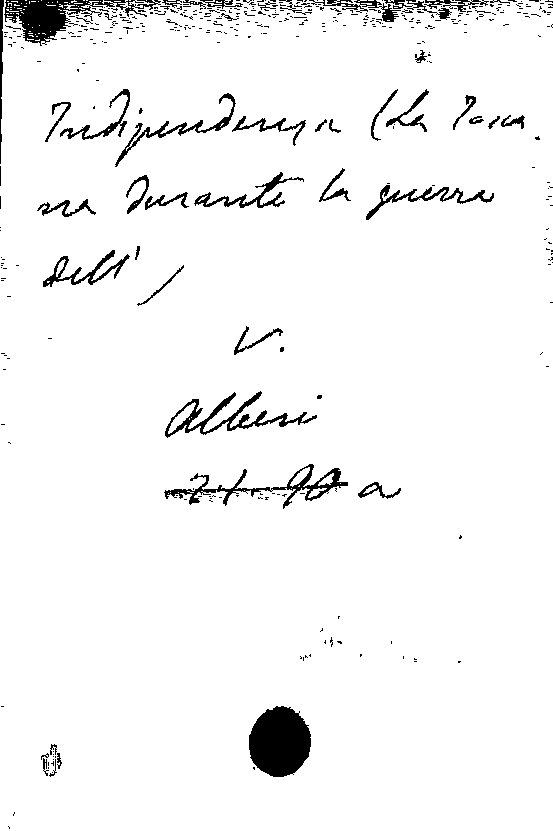 Indipendenza (La Tosca
na durante la guerra
dell'
V.
Alberi